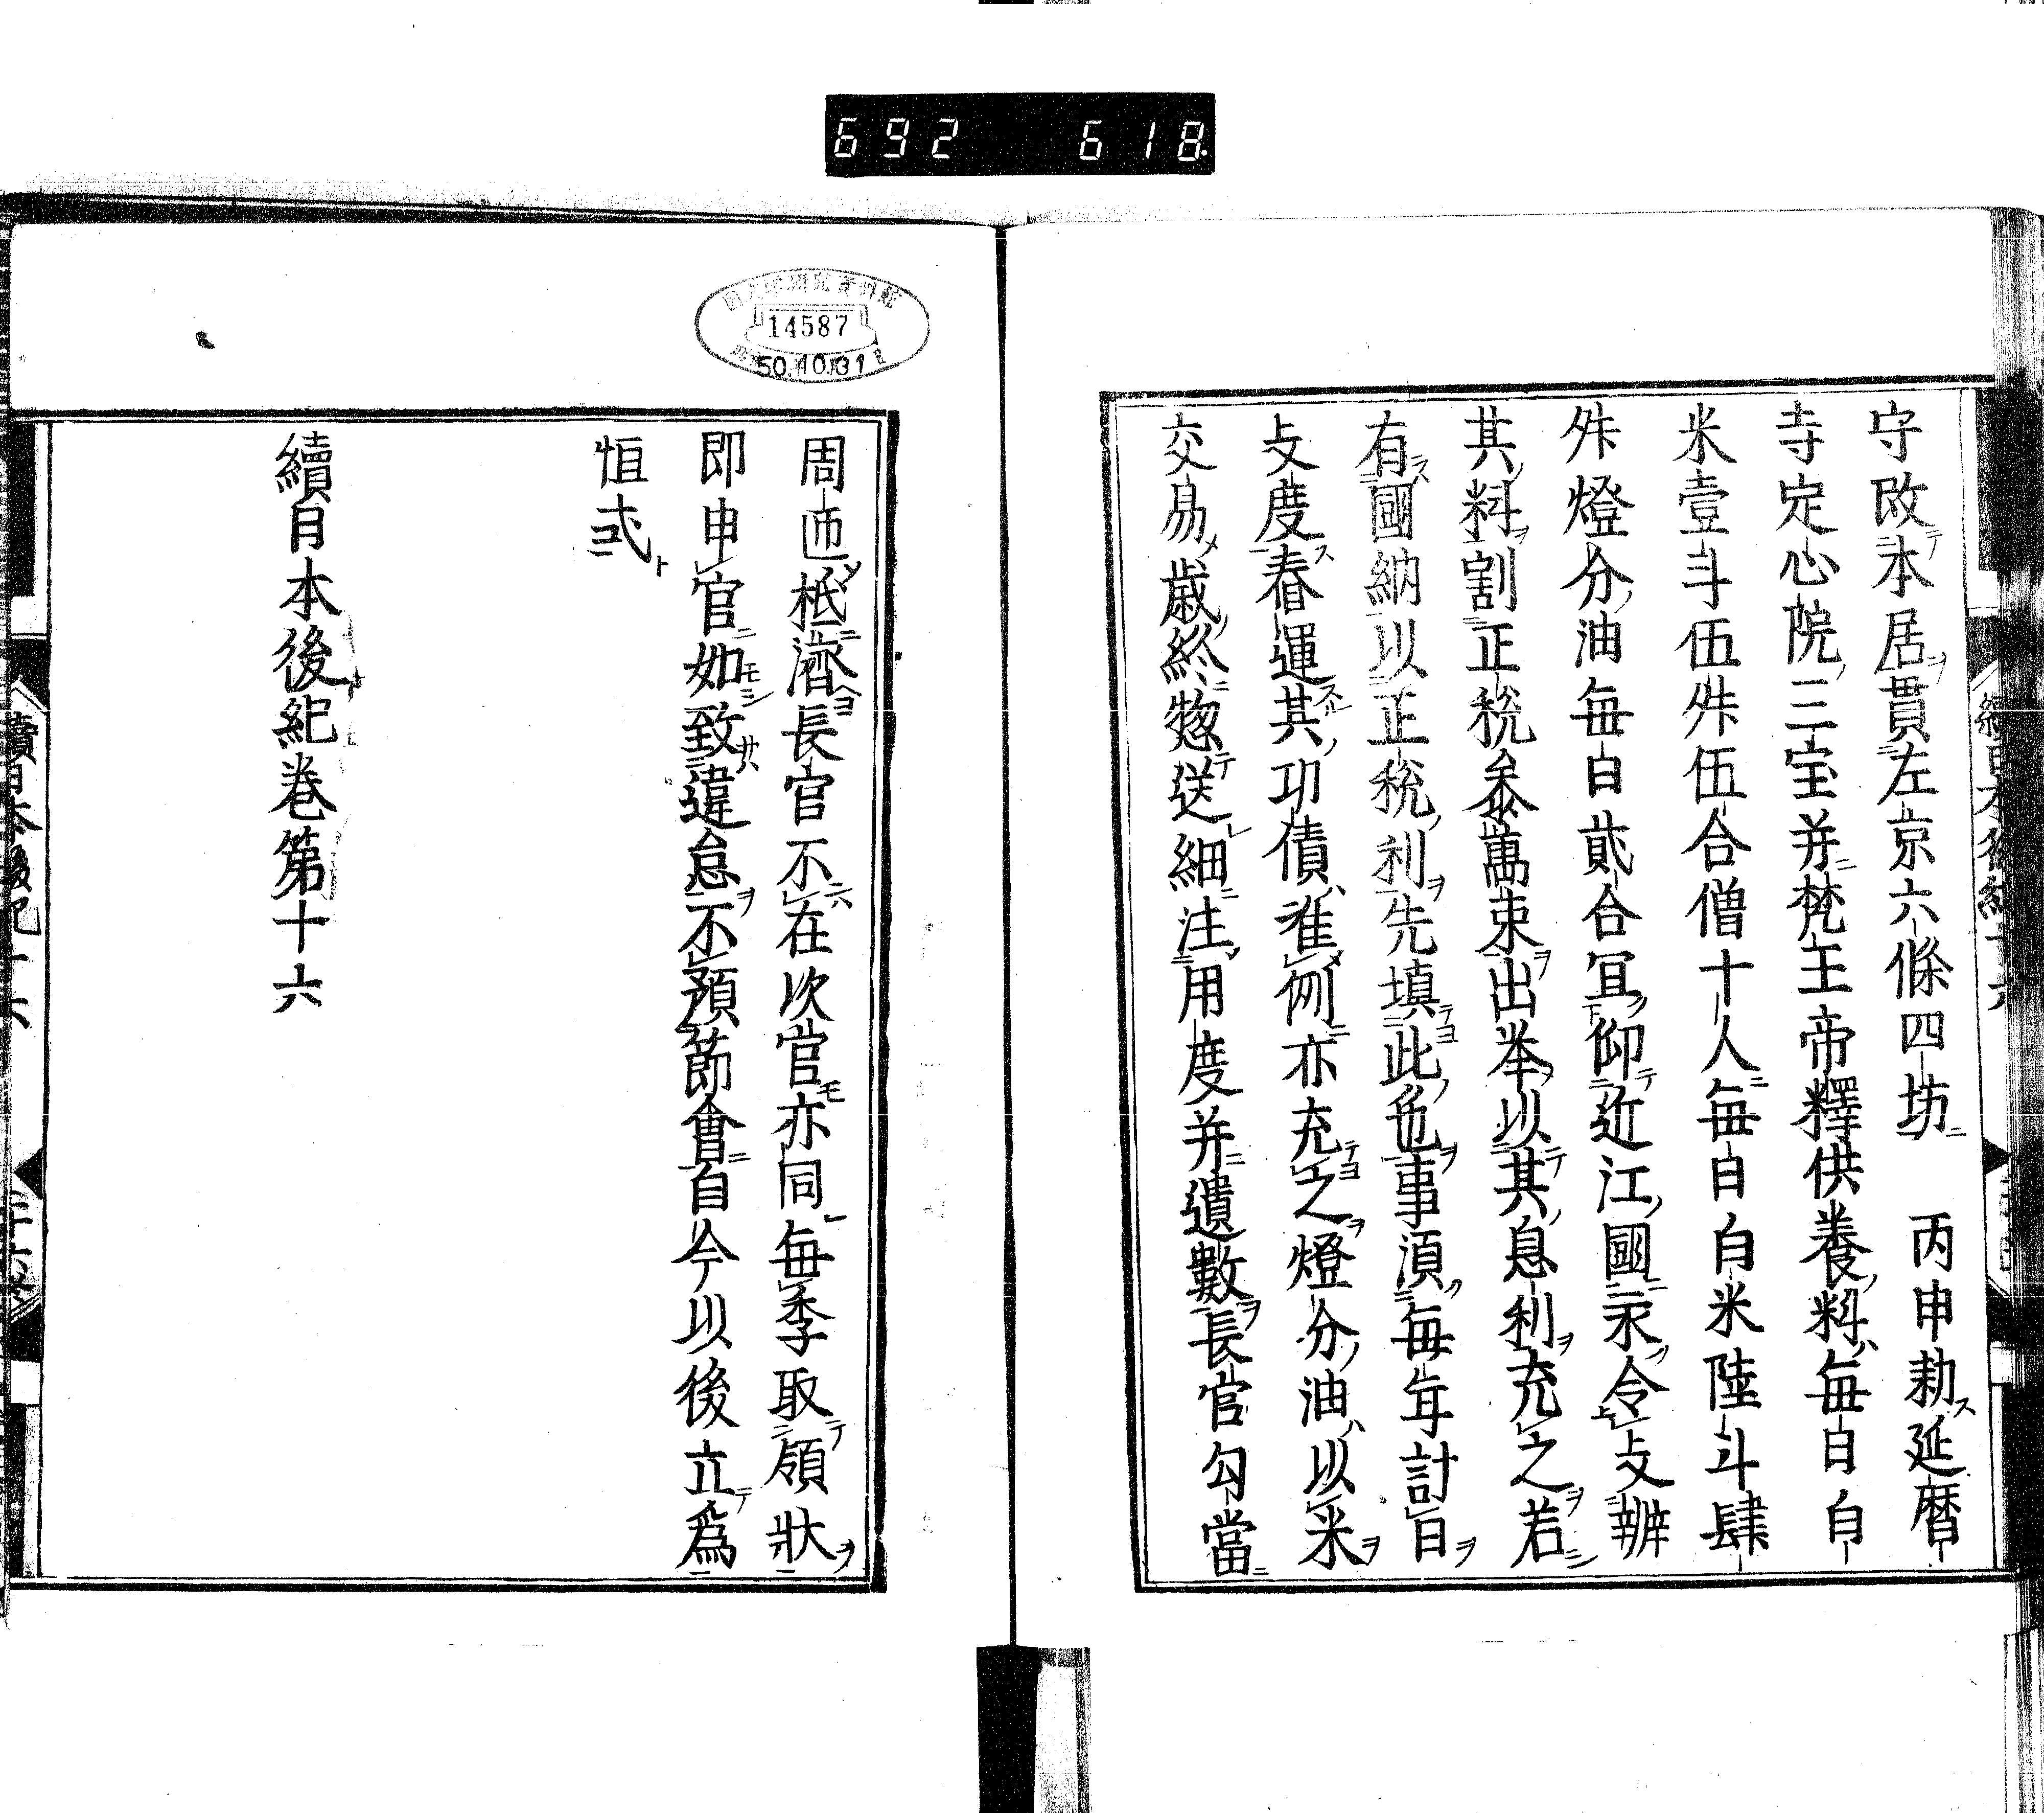 692 618
守改本居貫左京六條四坊 丙申勅延暦
寺定心院三宝并梵王帝釋供養料毎日白
米壹斗伍舛伍合僧十人毎日白米陸斗肆
舛燈分油毎日貳合冝仰近江國永令支辨
其料割正税柒萬束出挙以其息利充之若
有國納以正税利先填此色事湏毎年計日
支度舂運其功債准例亦充之燈分油以米
交易歳終惣送細注用度并遺數長官勾當
周迊柢濟長官不在次官亦同毎季取領狀
即申官如致違怠不預節會自今以後立為
恒式
續日本後紀巻第十六
14587
50.10.31